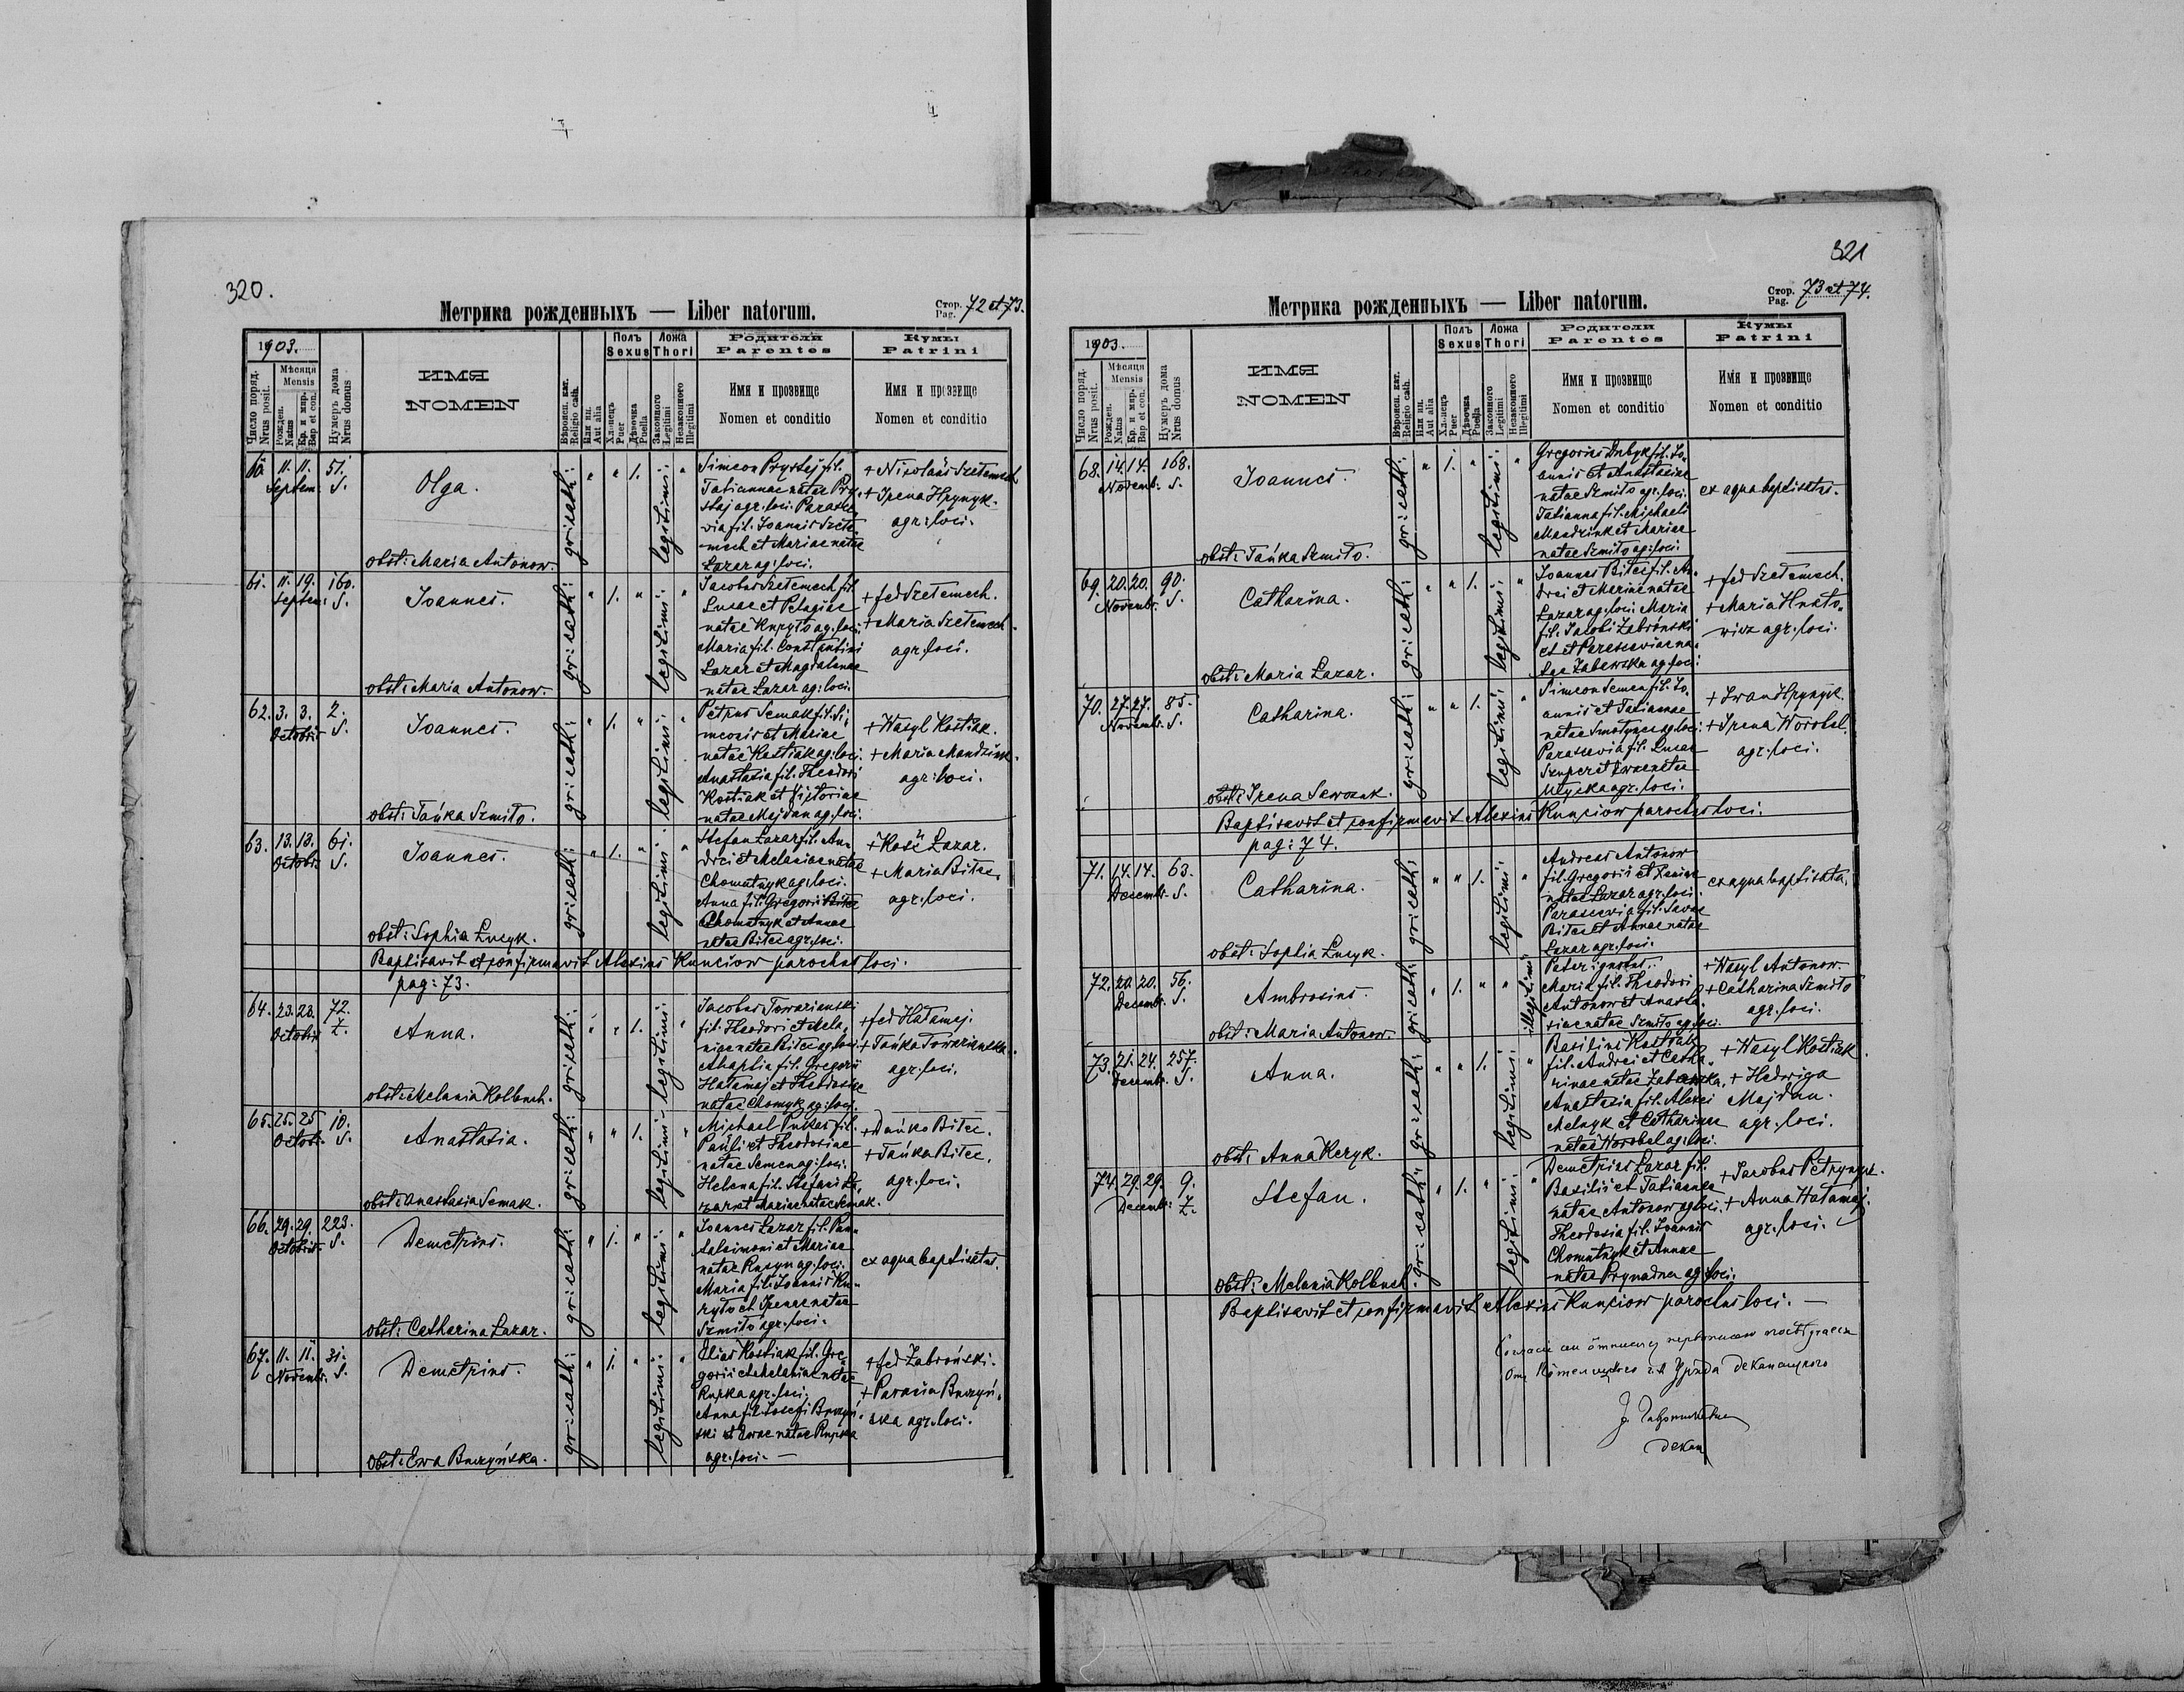 320.
Метрика рожденныхъ — Liber natorum.
Стор. Pag. 72 et 73.
1903.
Число поряд. Nrus posit.
Мѣсяця Mensis
Рожден. Natus
Кр. и мир. Bap et con.
Нумеръ дома Nrus domus
ИМЯ
NOMEN
Вѣроисп. кат. Religio cath.
Или ин. Aut alia
Полъ Sexus
Хлопець Puer
Дѣвочка Puella
Ложа Thori
Законного Legitimi
Незаконного Illegitimi
Родители
Parentes
Имя и прозвище
Nomen et conditio
Кумы
Patrini
Имя и прозвище
Nomen et conditio
60. 11. 11. 51.
Septem. S.
Olga.
obst: Maria Antonow.
gr: cath: " " 1. legitimi: "
Simeon Prystaj fil.
Tatiannae natae Pry-
staj agr: loci. Paraske-
via fil. Joannis Szete-
mech et Mariae natae
Lazar ag: loci.
+ Nicolaus Szetemech
+ Irena Hrynyk.
agr: loci.
61. 11. 19. 160.
Septem: S.
Joannes.
obst: Maria Antonow.
gr: cath: " 1. " legitimi: "
Jacobus Szetemech fil.
Lucae et Pelagiae
natae Kuryło ag: loci
Maria fil. Constantini
Lazar et Magdalenae
natae Lazar ag: loci.
+ Fed Szetemech.
+ Maria Szetemech.
agr: loci.
62. 3. 3. 2.
Octobris S.
Joannes.
obst: Tańka Szmiło.
gr: cath: " 1. " legitimi: "
Petrus Semak fil. Si-
meonis et Mariae
natae Kostiak ag: loci.
Anastasia fil. Theodori
Kostiak et Victoriae
natae Majdan ag: loci.
+ Wasyl Kostiak.
+ Maria Mandziuk.
agr: loci.
63. 13. 13. 61.
Octobr. S.
Joannes.
obst: Sophia Łucyk.
gr: cath: " 1. " legitimi: "
Stefan Lazar fil. An-
drei et Melaniae natae
Chomutnyk ag: loci.
Anna fil. Gregorii
Chomutnyk et Annae
natae Bitec agr: loci.
+ Kość Lazar.
+ Maria Bitec.
agr: loci.
Baptisavit et confirmavit Alexius Kunciow parochus loci.
pag: 73.
64. 23. 23. 72.
Octobr. Z.
Anna.
obst: Melania Kolbuch.
gr: cath: " " 1. legitimi: "
Jacobus Towarianski
fil. Theodori et Mela-
niae natae Bitec ag: loci.
Ahaphia fil. Gregorii
Hałamaj et Theodosiae
natae Chomyk ag: loci.
+ Fed Hałamaj.
+ Tańka Towarianska.
agr: loci.
65. 25. 25 10.
Octobr. S.
Anastasia.
obst: Anastasia Semak.
gr: cath: " " 1. legitimi: "
Michael Pukas fil.
Pauli et Theodosiae
natae Semen ag: loci.
Helena fil. Stefani La-
zar et Mariae natae Semak.
+ Dańko Bitec.
+ Tańka Bitec.
agr: loci.
66. 29. 29. 223.
Octobris. S.
Demetrius.
obst: Catharina Lazar.
gr: cath: " 1. " legitimi: "
Joannes Lazar fil. Pan-
taleimonis et Mariae
natae Rusyn ag: loci.
Maria fil: Joannis Ku-
ryło et Irenae natae
Szmiło agr: loci.
ex aqua baptisatus.
67. 11. 11. 31.
Novembr. S.
Demetrius.
obst: Ewa Buczyńska.
gr: cath: " 1. " legitimi: "
Elias Kostiak fil. Gre-
gorii et Melaniae natae
Rupka agr: loci.
Anna fil. Josefi Buczyń-
ski et Evae natae Rupka
agr: loci. —
+ Fed Zabroński.
+ Parania Buczyń-
ska agr: loci.
321
Метрика рожденныхъ — Liber natorum.
Стор. Pag. 73 et 74.
1903.
Число поряд. Nrus posit.
Мѣсяця Mensis
Рожден. Natus
Кр. и мир. Bap et con.
Нумеръ дома Nrus domus
ИМЯ
NOMEN
Вѣроисп. кат. Religio cath.
Или ин. Aut alia
Полъ Sexus
Хлопець Puer
Дѣвочка Puella
Ложа Thori
Законного Legitimi
Незаконного Illegitimi
Родители
Parentes
Имя и прозвище
Nomen et conditio
Кумы
Patrini
Имя и прозвище
Nomen et conditio
68. 14. 14. 168.
Novemb. S.
Joannes.
obst: Tańka Szmiło.
gr: cath: " 1. " legitimi: "
Gregorius fil. Jo-
annis et Anastasiae
natae Szmiło agr: loci.
Tatianna fil. Michaeli
Mandziuk et Mariae
natae Szmiło ag: loci.
ex aqua baptisatus.
69. 20. 20. 90.
Novembr. S.
Catharina.
obst: Maria Lazar.
gr: cath: " " 1. legitimi: "
Joannes Bitec fil. An-
drei et Mariae natae
Lazar ag: loci. Maria
fil. Jacobi Zabroński
et Parasceviae na-
tae ag: loci.
+ Fed Szetemech.
+ Maria Hnato-
wicz agr: loci.
70. 27. 27. 85.
Novembr. S.
Catharina.
obst: Irena Sawczuk.
gr: cath: " " 1. legitimi: "
Simeon Semen fil. Jo-
annis et Tatianae
natae ag: loci.
Parascevia fil. Lucae
Szuper et Evae natae
agr: loci.
+ Iwan Hrynyk.
+ Irena Worobel.
agr: loci.
Baptisavit et confirmavit Alexius Kunciow parochus loci.
pag: 74.
71. 14. 14. 63.
Decembr. S.
Catharina.
obst: Sophia Łucyk.
gr: cath: " " 1. legitimi: "
Andreas Antonow
fil. Gregorii et
natae Lazar agr: loci.
Parascevia fil. Savae
Bitec et Annae natae
Lazar agr: loci.
ex aqua baptisata.
72. 20. 20. 56.
Decembr. S.
Ambrosius.
obst: Maria Antonow.
gr: cath: " 1. " " illegitimi
Pater ignotus.
Maria fil. Theodori
Antonow et Anasta-
siae natae Szmiło ag: loci.
+ Wasyl Antonow.
+ Catharina Szmiło
agr: loci.
73. 21. 24. 257.
Decembr. S.
Anna.
obst: Anna Keryk.
gr: cath: " " 1. legitimi: "
Basilius Kostiak
fil. Andrei et Catha-
rinae natae
Anastasia fil. Alexei
Melnyk et Catharinae
natae Worobel ag: loci.
+ Wasyl Kostiak
+ Hedviga
Majdan.
agr: loci.
74. 29. 29. 9.
Decemb: Z.
Stefan.
obst: Melania Kolbuch.
gr: cath: " 1. " legitimi: "
Demetrius Lazar fil.
Basilii et Tatianae
natae Antonow ag: loci.
Theodosia fil. Joannis
Chomutnyk et Annae
natae Prynadna ag: loci.
+ Jacobus Petrynyk.
+ Anna Hałamaj.
agr: loci.
Baptisavit et confirmavit Alexius Kunciow parochus loci. —
декан